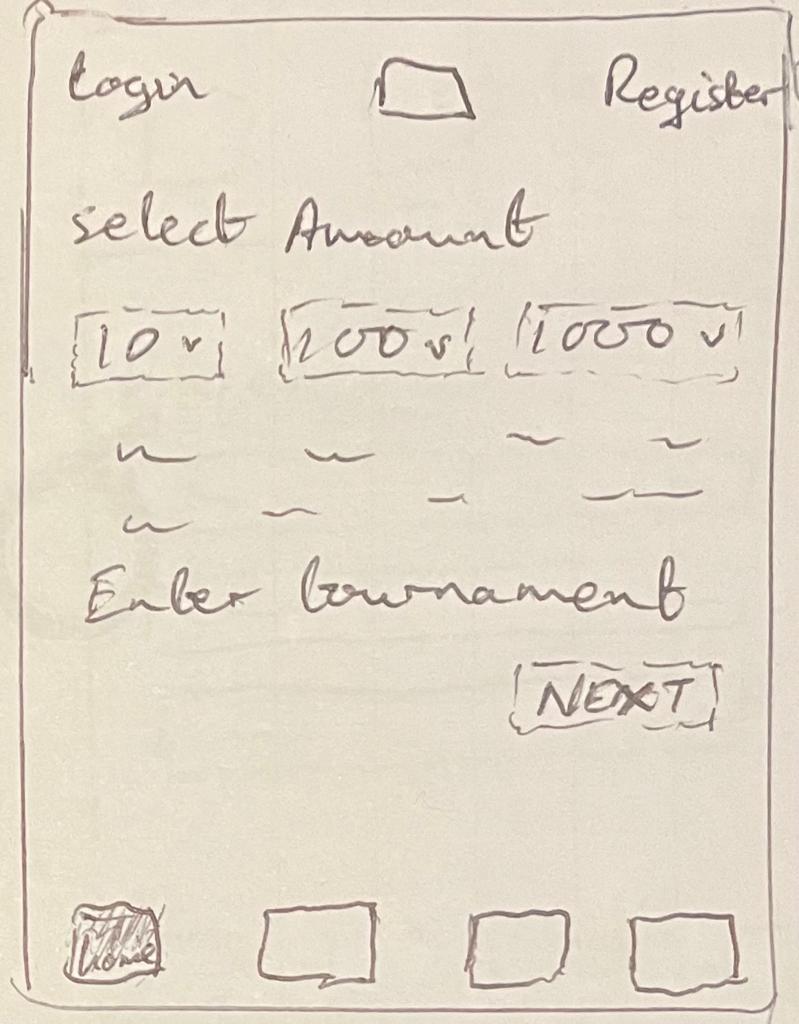 Login Register
select Amount
10 v 100 v 1000 v
Enter tournament
NEXT
Home